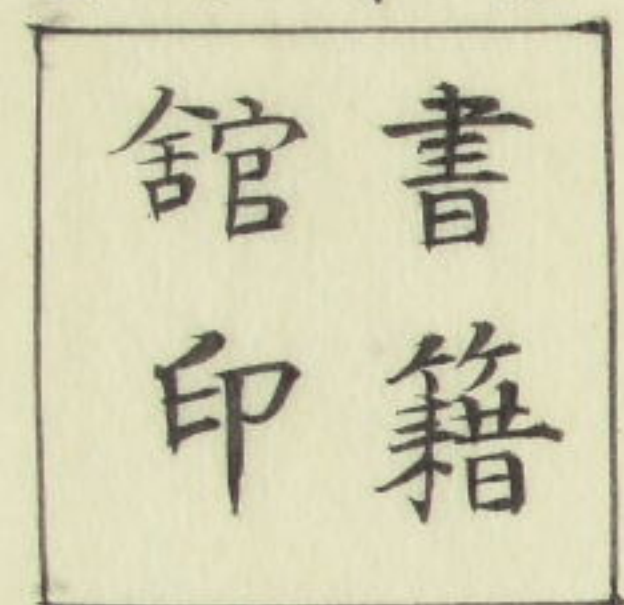 書籍
舘印